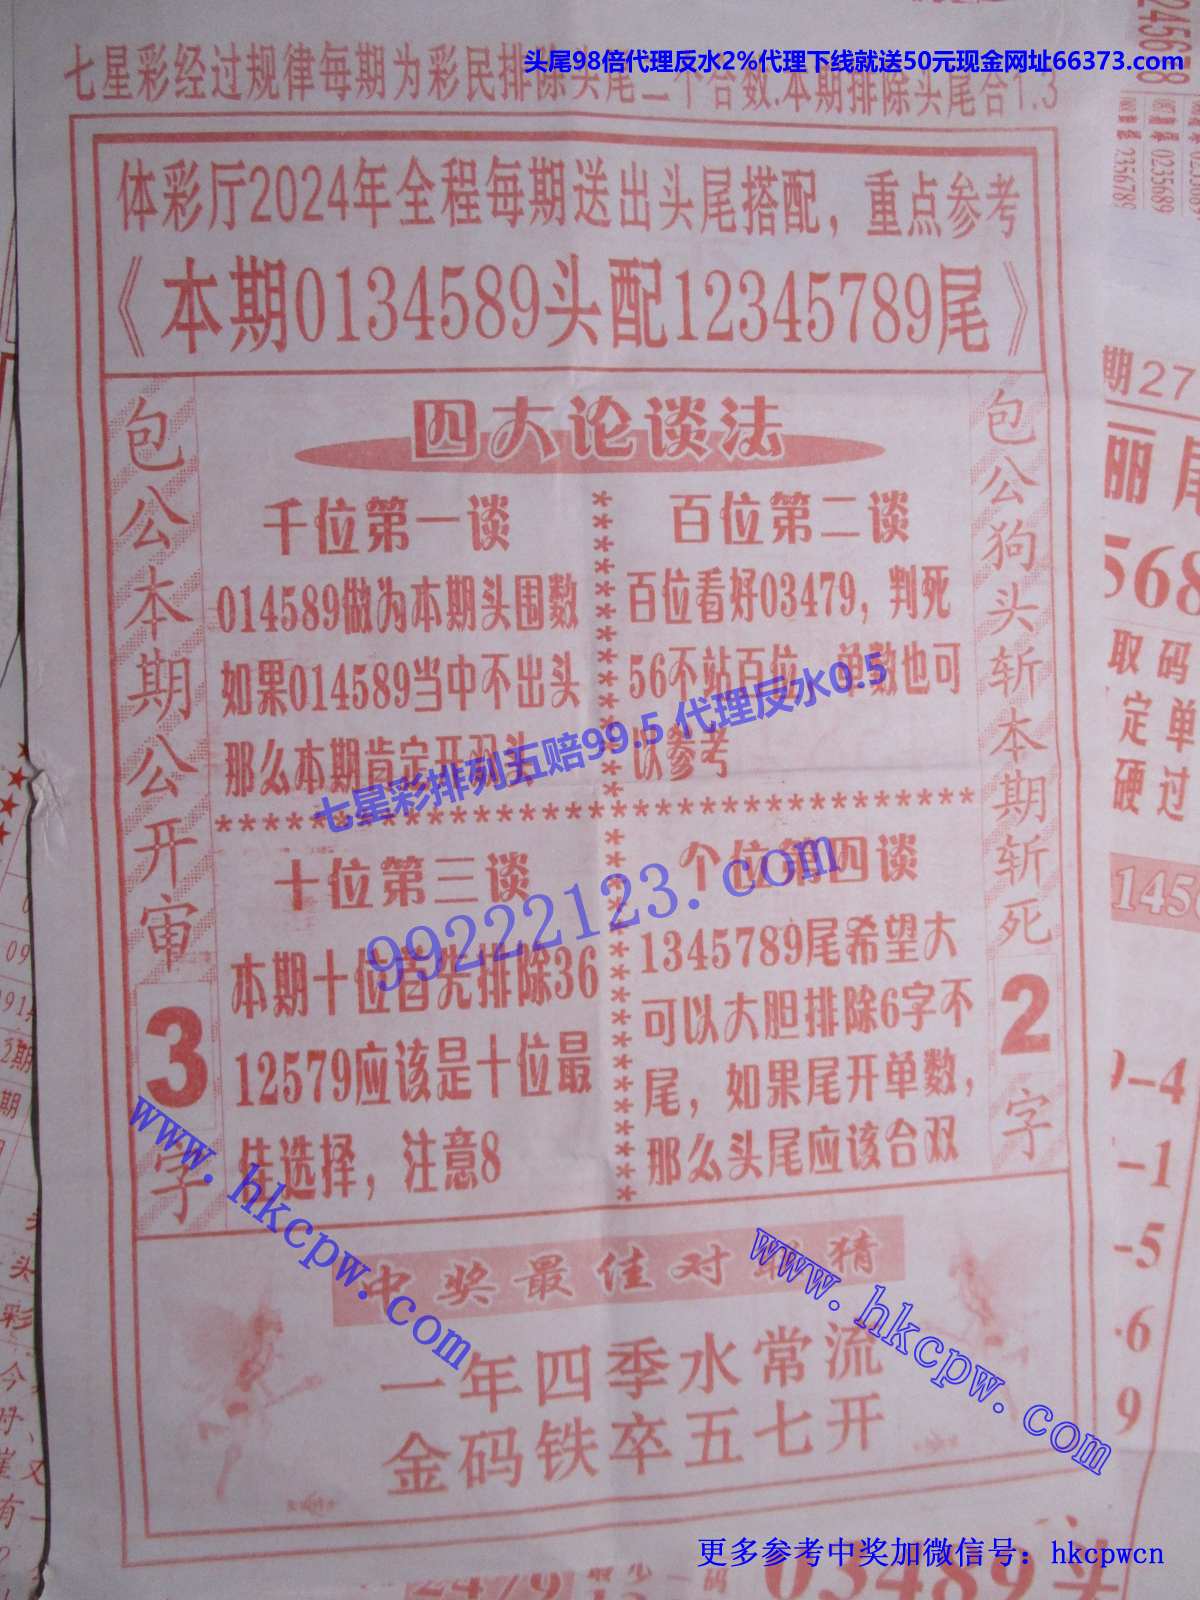 头尾98倍代理反水2%代理下线就送50元现金网址66373.com
七星彩经过规律每期为彩民排除头尾二个合数.本期排除头尾合1.3
体彩厅2024年全程每期送出头尾搭配，重点参考
《本期0134589头配12345789尾》
包公本期公开审3字
四大论谈法
千位第一谈
014589做为本期头围数
如果014589当中不出头
那么本期肯定开双头
百位第二谈
百位看好03479，判死
56不站百位，单数也可
以参考
七星彩排列五赔99.5 代理反水0.5
十位第三谈
本期十位首先排除36
12579应该是十位最
佳选择，注意8
个位第四谈
1345789尾希望大
可以大胆排除6字不
尾，如果尾开单数，
那么头尾应该合双
99222123.com
包公狗头斩本期斩死2字
www.hkcpw.com
www.hkcpw.com
中奖最佳对联猜
一年四季水常流
金码铁卒五七开
期27
丽尾
568
取码
定单
硬过
145
9-4
-1
-5
-6
9
03489头
更多参考中奖加微信号：hkcpwcn